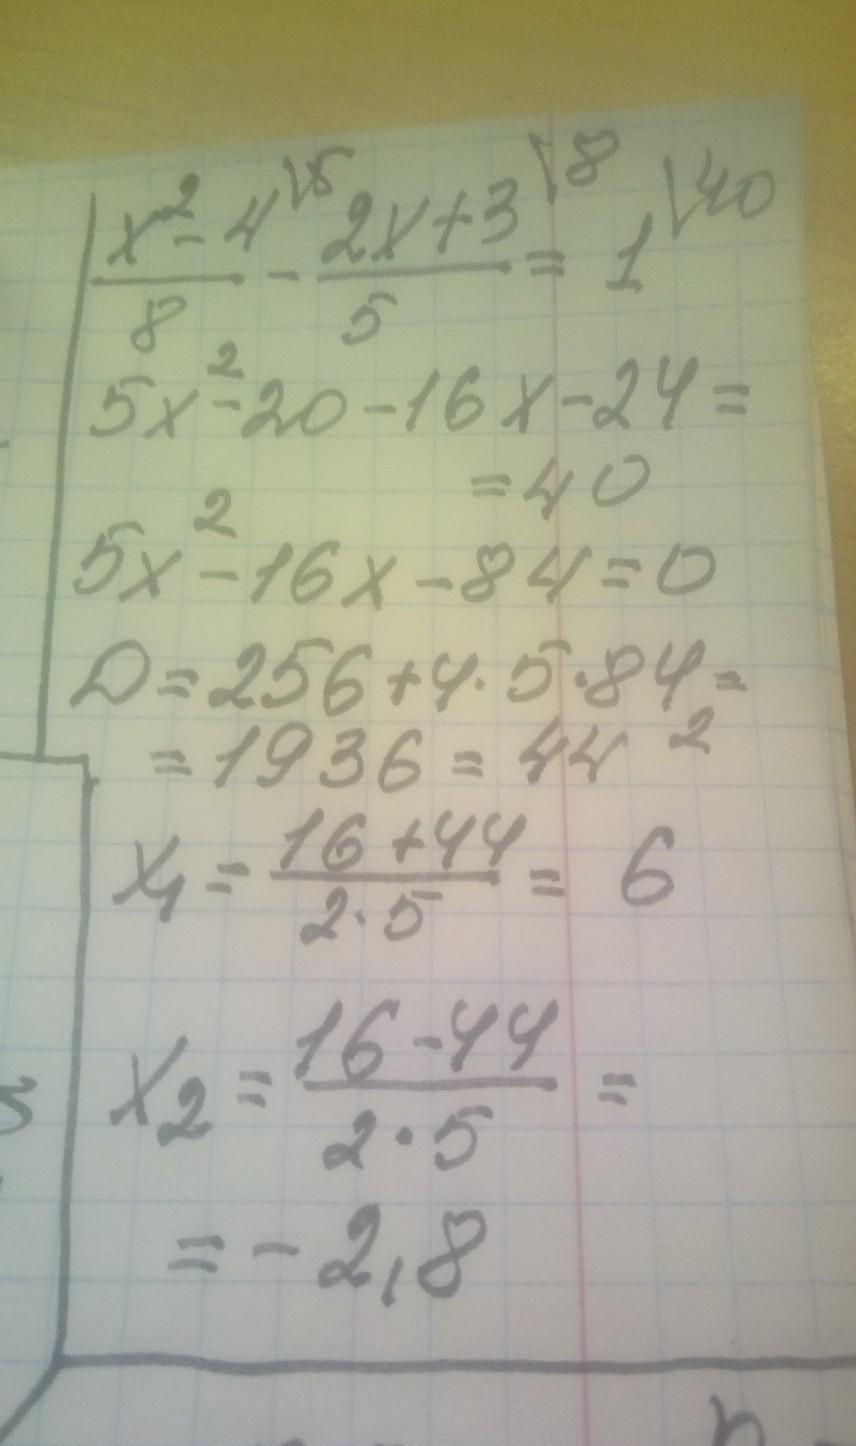 x² - 4 \5   2x + 3 \8   \40
—— - —— = 1
8   5
5x² - 20 - 16x - 24 =
= 40
5x² - 16x - 84 = 0
D = 256 + 4 · 5 · 84 =
= 1936 = 44²
x₁ = (16 + 44)/(2 · 5) = 6
x₂ = (16 - 44)/(2 · 5) =
= - 2,8